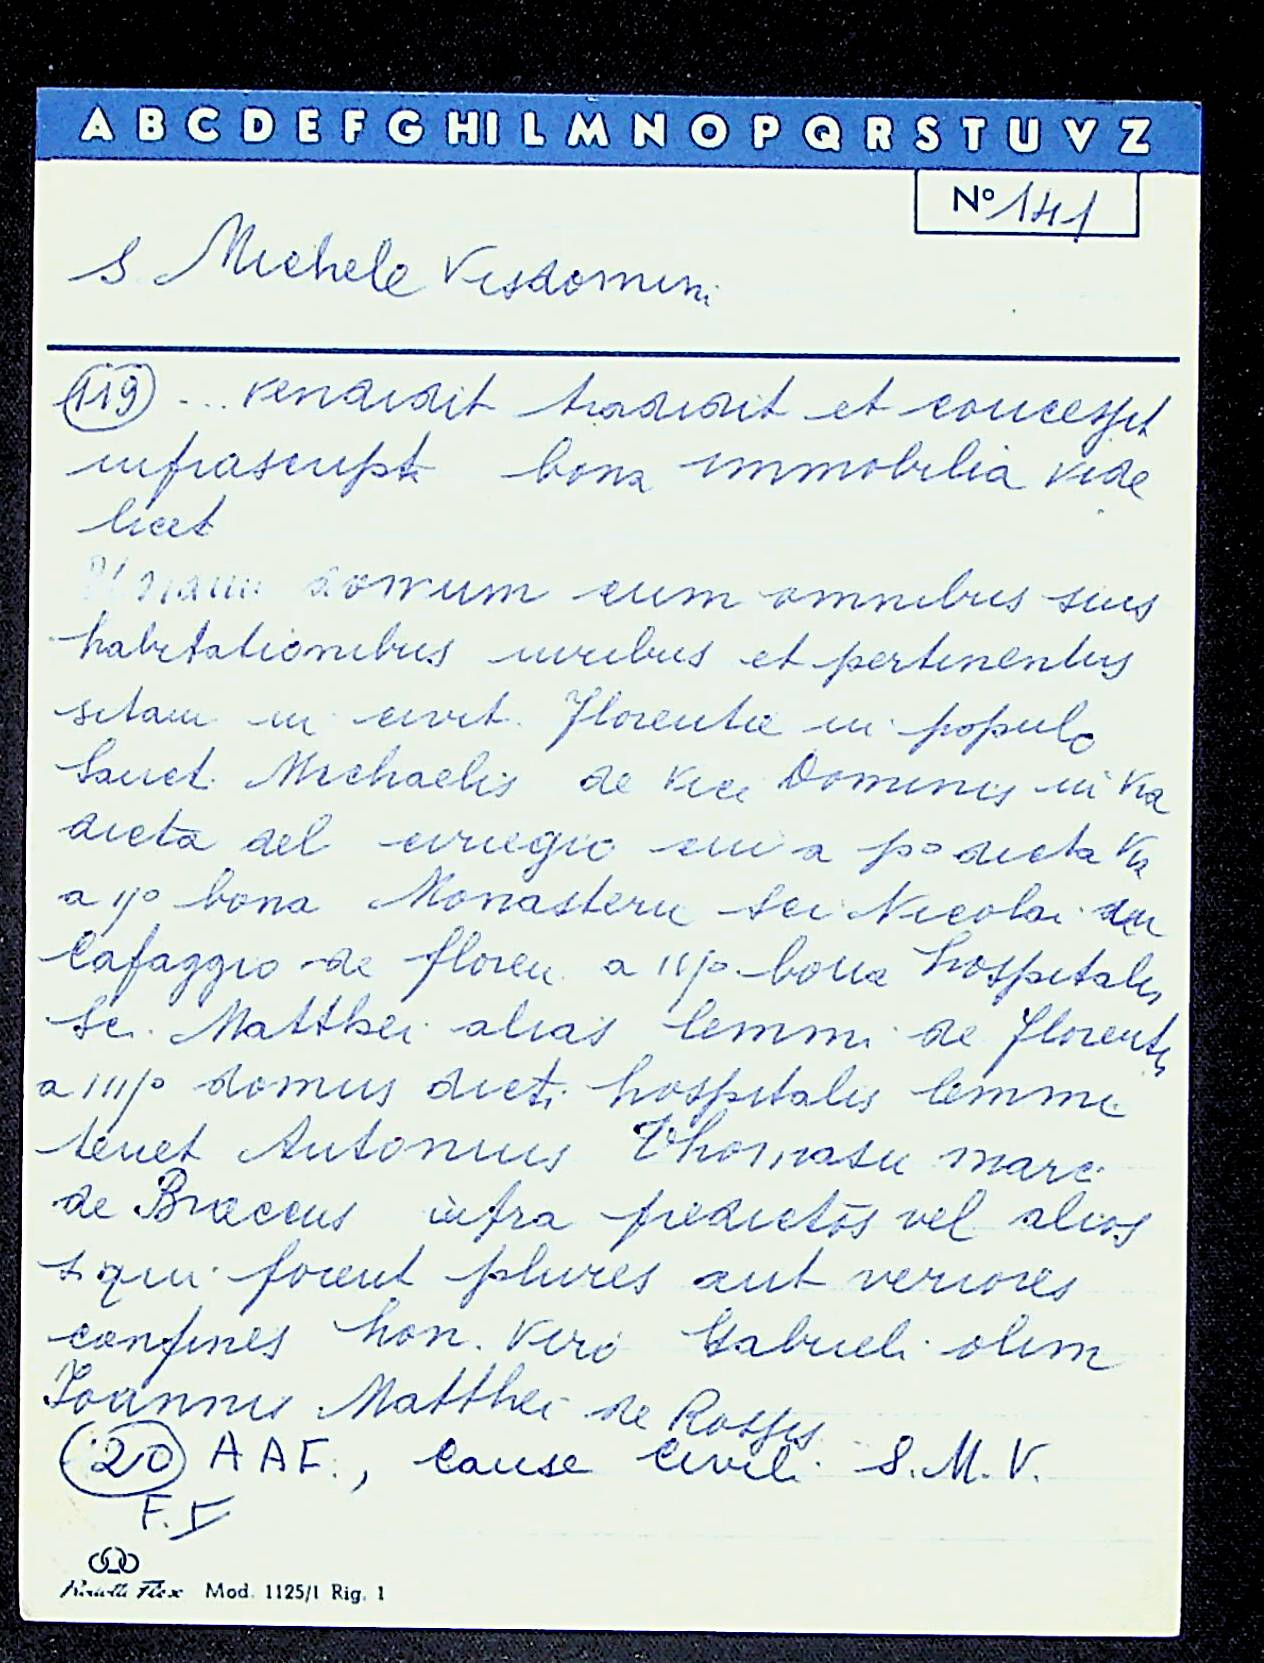 A B C D E F G HI L M N O P Q R S T U V Z
Nº 141
S Michele Visdomini
119 ... vendidit tradidit et concessit
infrascript bona immobilia vide
licet
Unam domum cum omnibus suis
habitationibus iuribus et pertinentiis
sitam in civit. Florentie in populo
Sanct. Michaelis de Vice Dominis in via
dicta del ciriegio cui a pº dicta via
a ijº bona Monasterii Sci Nicolai
Cafaggio de floren a iijº bona hospitalis
Sci. Matthei alias lemmi de florentia
a iiijº domus dicti hospitalis lemmi
tenet Antonius Thomasii marci
de Braccius infra predictos vel alios
s qui forent plures aut veriores
confines hon. viro Gabrieli olim
Joannis Matthei de Rossis
20 A A F., Cause Civili S. M. V.
F. V
Mod. 1125/1 Rig. 1